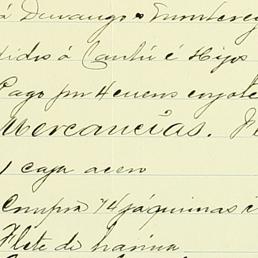 á Durango & Monterey
tidos á Cantú é Hijos
Pago por 4 cueros coyote
Mercancías. F
1 caja acero
Compra 74 páquinas
Flete de harina